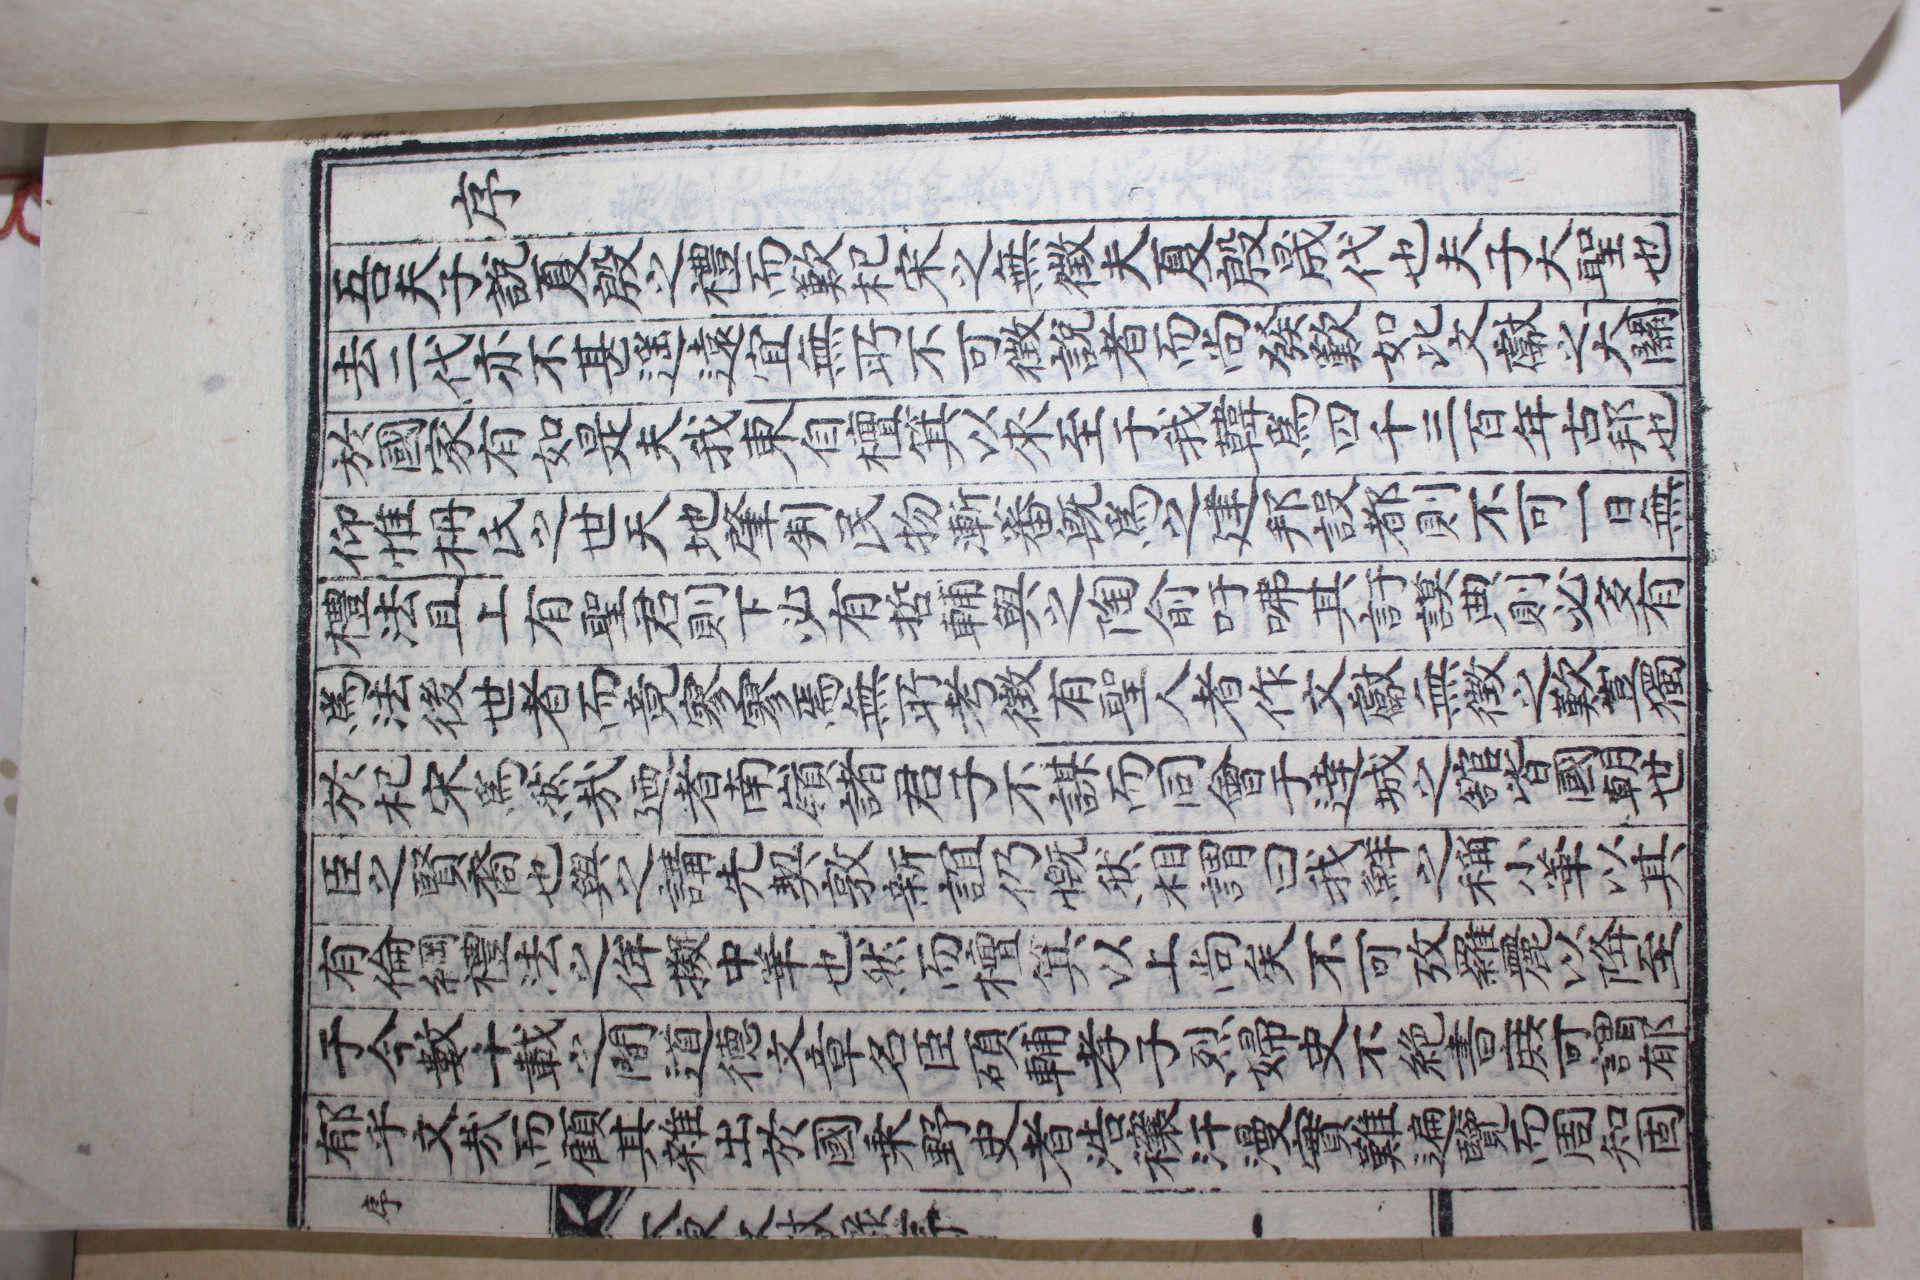 序
吾夫子說夏殷之禮而歎杞宋之無徵夫夏殷晟代也夫子大聖也
去二代亦不甚遥遠宜無所不可徵說者而尚發歎如此文獻之大關
於國家有如是夫我東自檀箕以來至于我韓爲四千三百年古邦也
仰惟枏氏之世天地肇判民物漸蕃旣爲之建邦設都則不可一日無
禮法且上有聖君則下必有哲輔與之陶俞吁咈其訏謨典則必多有
爲法後世者而竟寥寥焉無所考徵有聖人者作文獻無徵之歎豈獨
於杞宋爲然㦲廼者南嶺諸君子不謀而同會于達城之舘皆國朝世
臣之賢裔也與之講先契敦新誼仍慨然相謂曰我鮮之稱小華以其
有倫綱禮法之侔擬中華也然而檀箕以上尚矣不可攷羅麗以降至
于今數千載之間道德文章名臣碩輔孝子烈婦史不絶書庶可謂郁
郁乎文㦲而顧其雜出於國乘野史者浩穰汗漫實難遍覽而周知固
序
大東文獻錄序